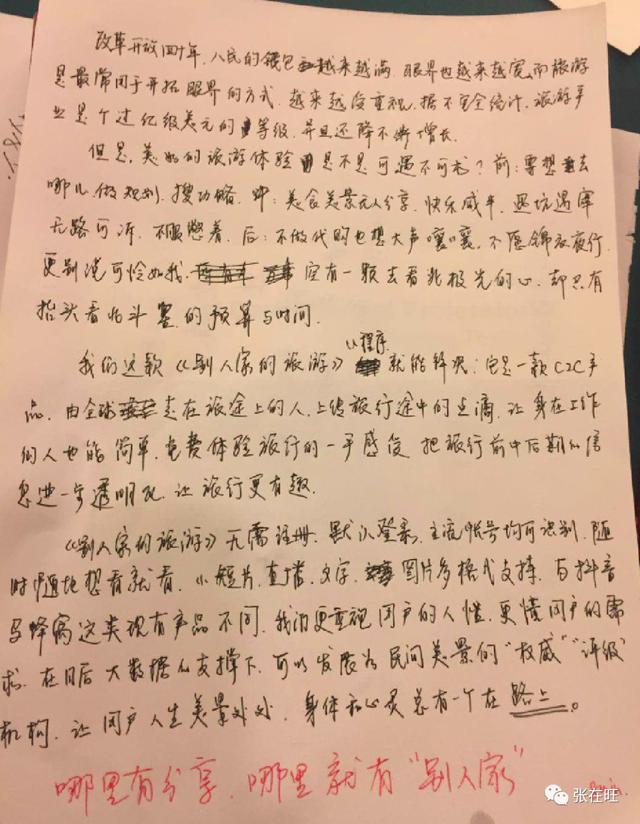 改革开放四十年，人民的钱包越来越满，眼界也越来越宽，而旅游
是最常用于开拓眼界的方式，越来越受重视，据不完全统计，旅游产
业是个过亿级美元的等级，并且还降不断增长。
但是，美好的旅游体验是不是可遇不可求？前：要想去
哪儿，做规划，搜功略，中：美食美景无人分享，快乐减半，遇坑遇宰
无路可诉，不服憋着，后：不做代购也想大声嚷嚷，不愿锦衣夜行，
更别说可怜如我，空有一颗去看北极光的心，却只有
抬头看北斗星的预算与时间。
我们这款《别人家的旅游》小程序就能解决：它是一款C2C产
品，由全球走在旅途上的人，上传旅行途中的点滴，让身在工作
的人也能简单、免费体验旅行的一手感受，把旅行前中后期的信
息进一步透明化，让旅行更有趣。
《别人家的旅游》无需注册，默认登录，主流帐号均可识别，随
时随地想看就看，小短片、直播、文字、图片多格式支持，与抖音
马蜂窝这类现有产品不同，我们更重视用户的人性，更懂用户的需
求，在日后大数据的支撑下，可以发展为民间美景的“权威”“评级”
机构，让用户人生美景处处，身体和心灵总有一个在路上。
哪里有分享，哪里就有“别人家”
张在旺